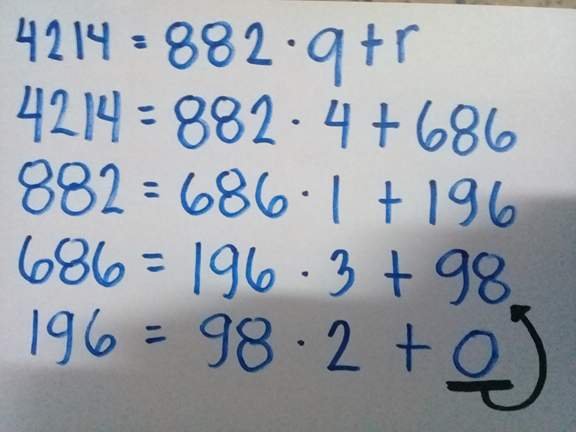 4214 = 882 · q + r
4214 = 882 · 4 + 686
882 = 686 · 1 + 196
686 = 196 · 3 + 98
196 = 98 · 2 + 0